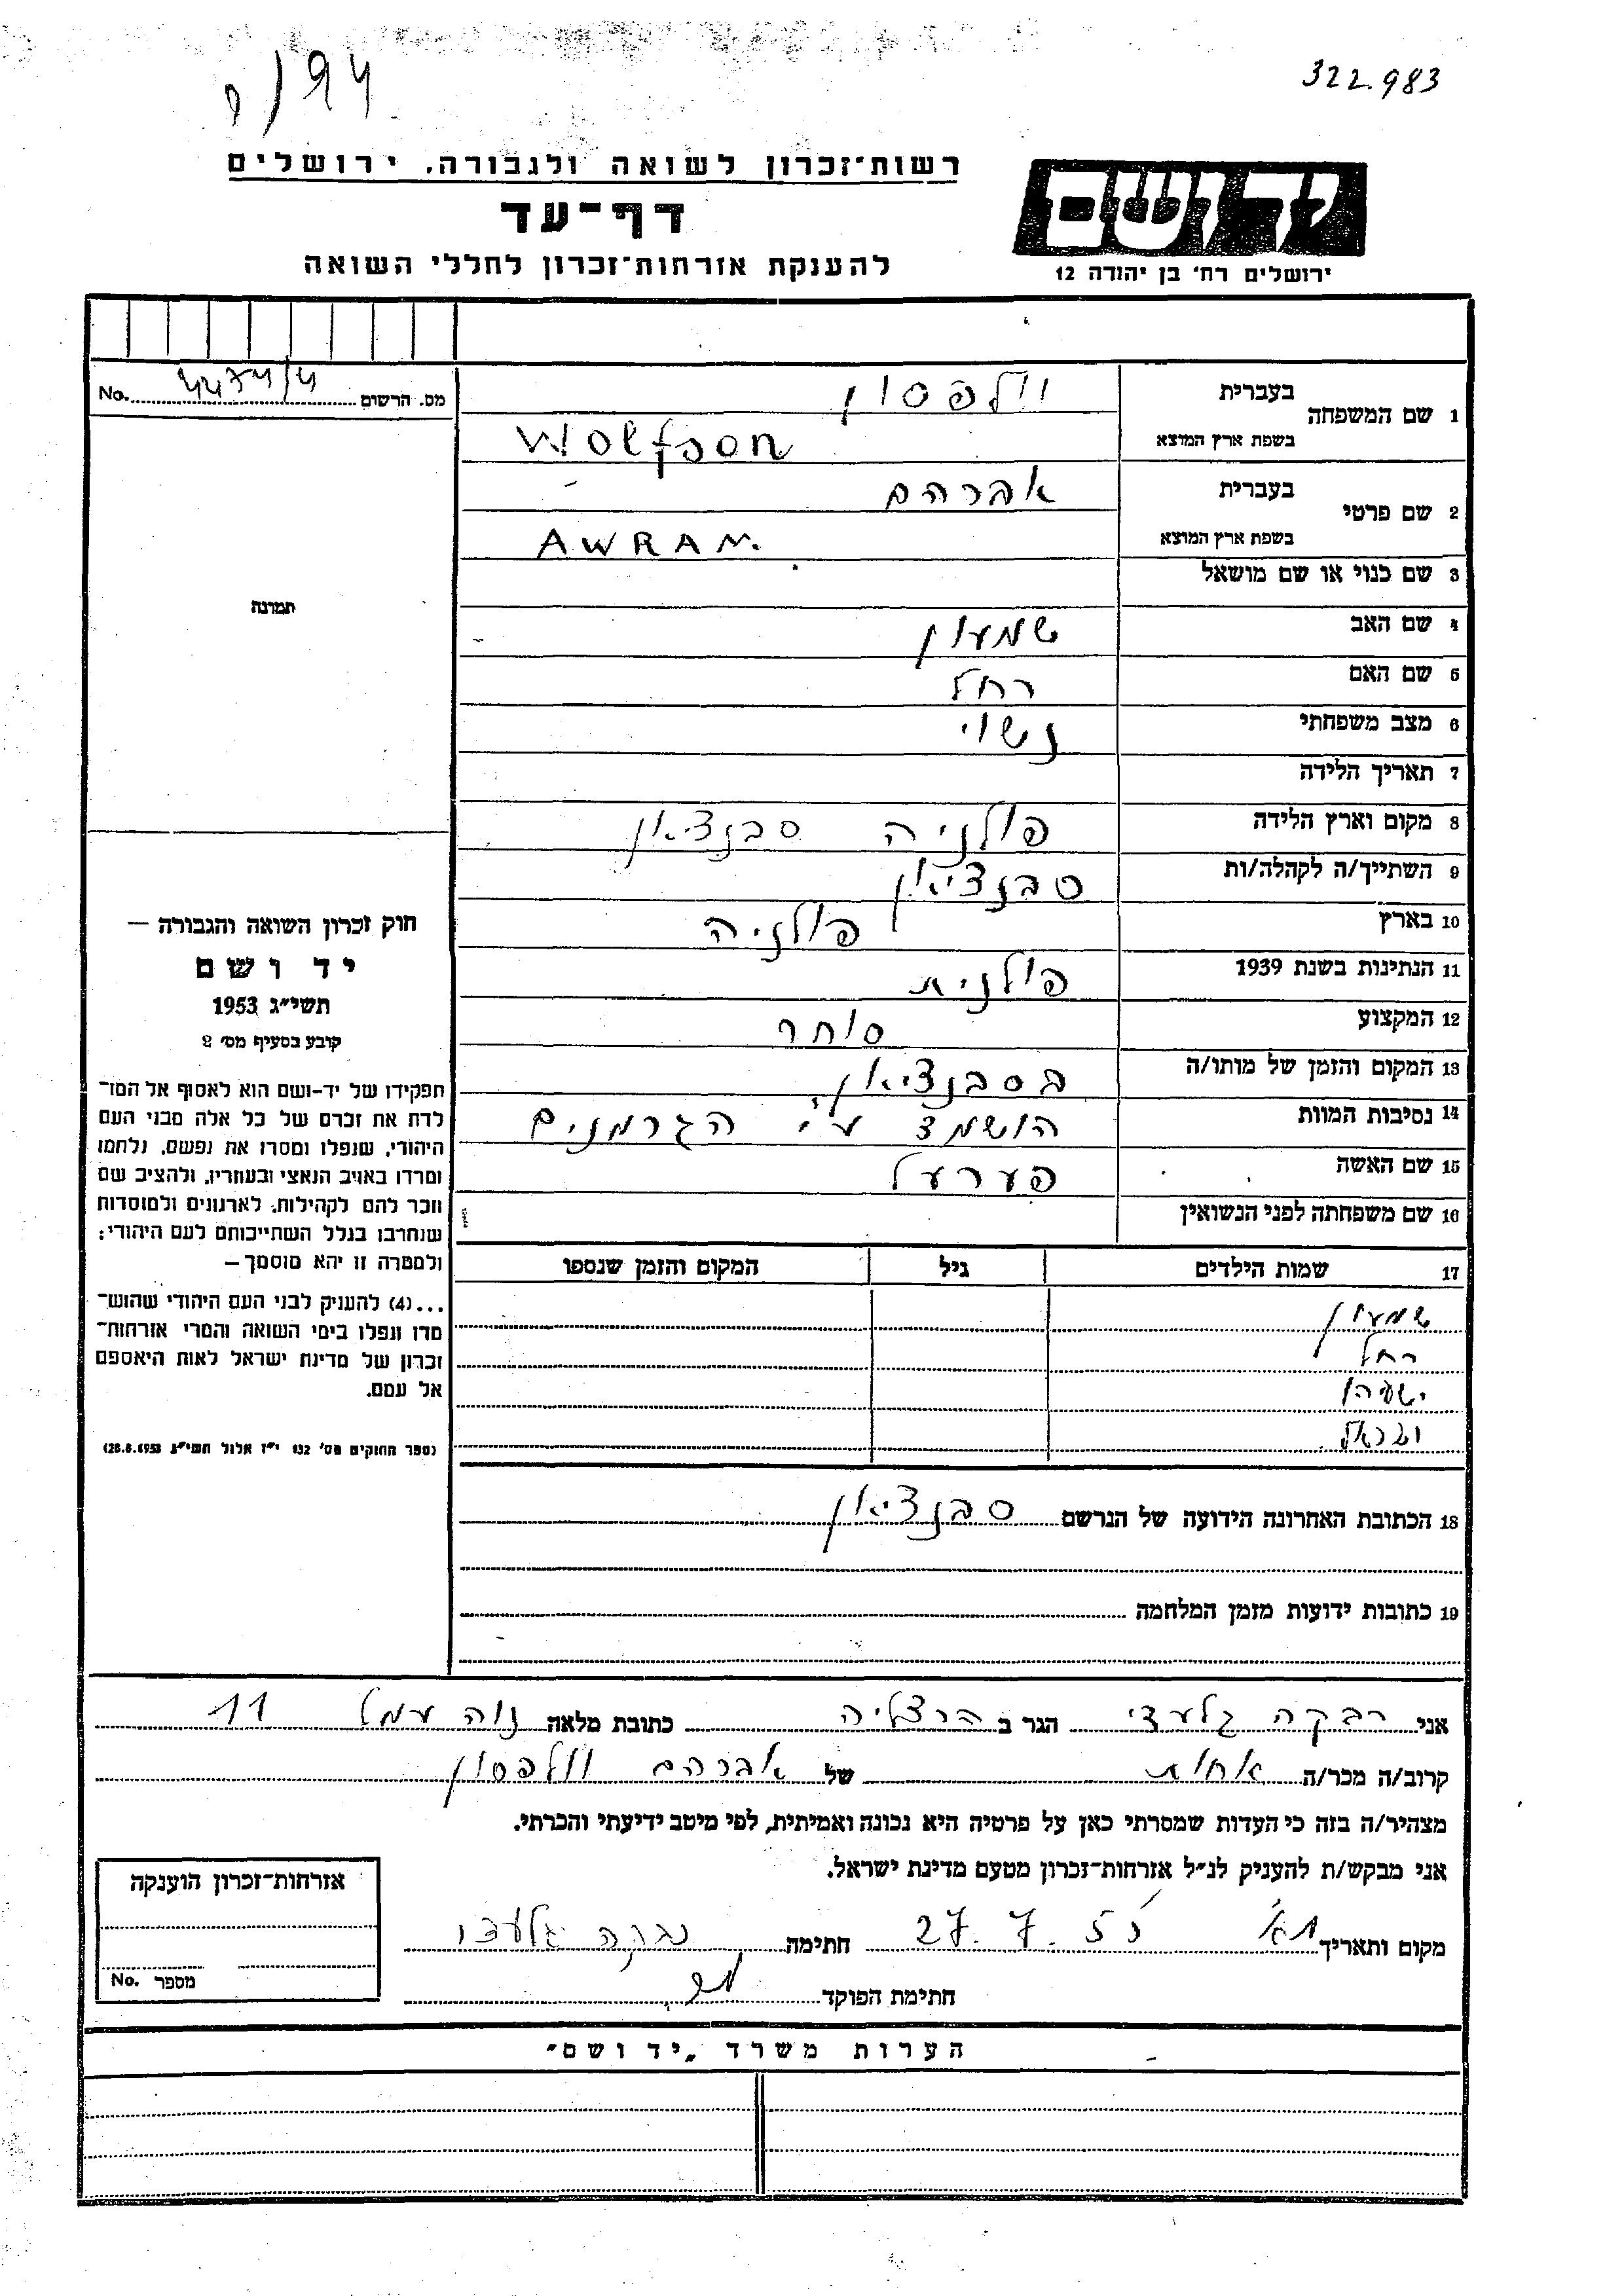 322.983
ו/94
רשות־זכרון לשואה ולגבורה, ירושלים
יד ושם
דף־עד
להענקת אזרחות־זכרון לחללי השואה
ירושלים רח' בן יהודה 12
מס. הרשום No.
1 שם המשפחה בעברית וולפסון
בשפת ארץ המוצא Wolfson
2 שם פרטי בעברית אברהם
בשפת ארץ המוצא AWRAM.
3 שם כנוי או שם מושאל
4 שם האב שמעון
5 שם האם רחל
6 מצב משפחתי נשוי
7 תאריך הלידה
8 מקום וארץ הלידה פולניה סבנציאן
9 השתייך/ה לקהלה/ות סבנציאן
10 בארץ פולניה
11 הנתינות בשנת 1939 פולנית
12 המקצוע סוחר
13 המקום והזמן של מותו/ה בסבנציאן
14 נסיבות המוות הושמד ע"י הגרמנים
15 שם האשה פערעל
16 שם משפחתה לפני הנשואין
17 שמות הילדים גיל המקום והזמן שנספו
שמעון
רחל
ישעיהו
18 הכתובת האחרונה הידועה של הנרשם סבנציאן
19 כתובות ידועות מזמן המלחמה
תמונה
חוק זכרון השואה והגבורה —
יד ושם
תשי"ג 1953
קובע בסעיף מס' 2
תפקידו של יד-ושם הוא לאסוף אל המו־
לדת את זכרם של כל אלה מבני העם
היהודי, שנפלו ומסרו את נפשם, נלחמו
ומרדו באויב הנאצי ובעוזריו, ולהציב שם
וזכר להם לקהילות, לארגונים ולמוסדות
שנחרבו בגלל השתייכותם לעם היהודי;
ולמטרה זו יהא מוסמך —
...(4) להעניק לבני העם היהודי שהוש־
מדו ונפלו בימי השואה והמרי אזרחות־
זכרון של מדינת ישראל לאות היאספם
אל עמם.
(ספר החוקים מס' 132 י"ז אלול תשי"ג 28.8.1953)
אני רבקה גלעדי הגר ב הרצליה כתובת מלאה נוה עמל 11
קרוב/ה מכר/ה אחות של אברהם וולפסון
מצהיר/ה בזה כי העדות שמסרתי כאן על פרטיה היא נכונה ואמיתית, לפי מיטב ידיעתי והכרתי.
אני מבקש/ת להעניק לנ"ל אזרחות־זכרון מטעם מדינת ישראל.
מקום ותאריך 27.7.55 חתימה רבקה גלעדי
חתימת הפוקד
אזרחות־זכרון הוענקה
מספר No.
הערות משרד „יד ושם"